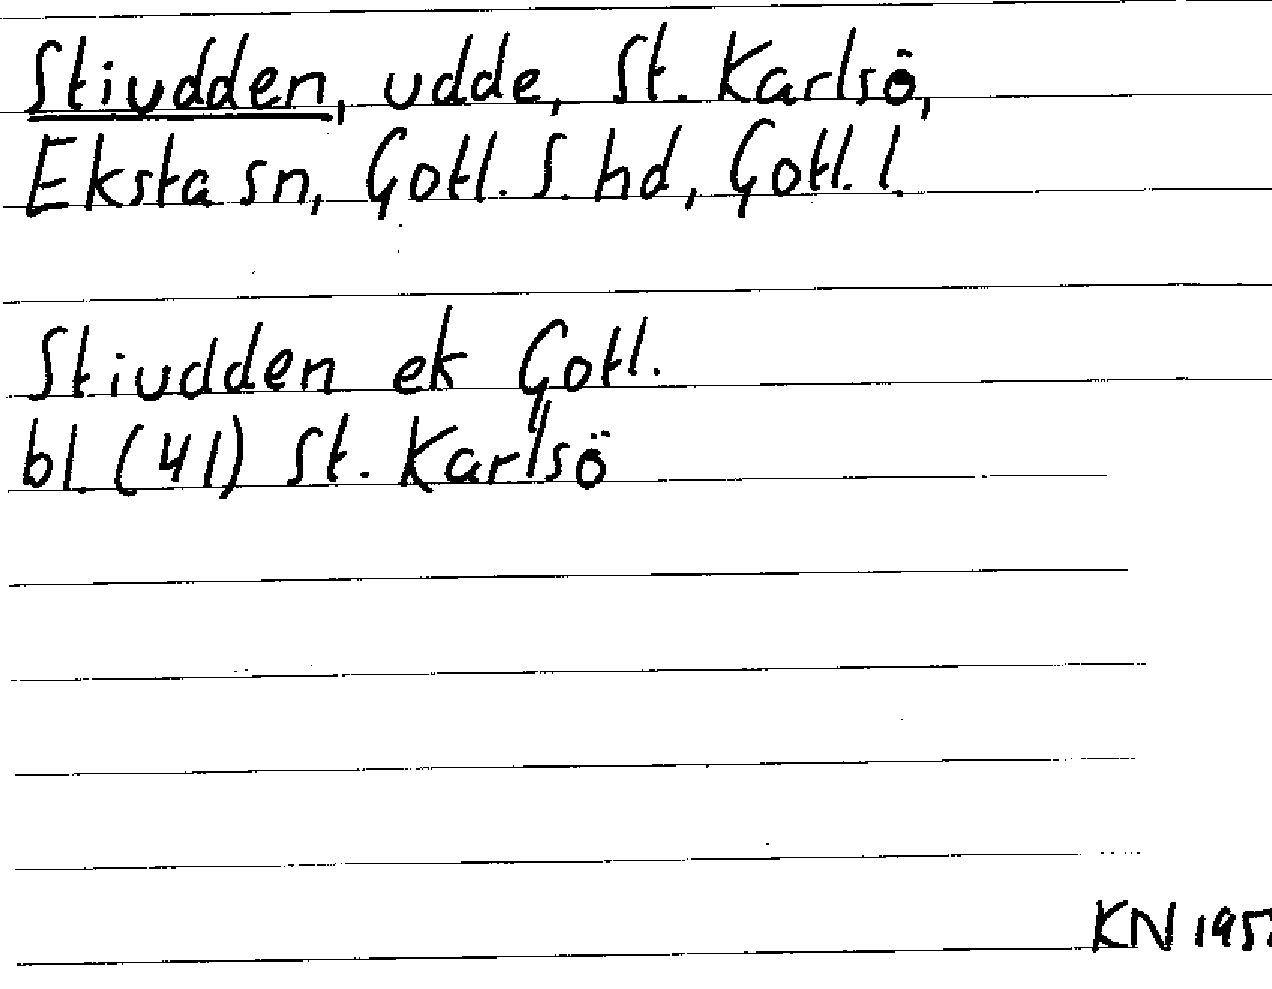 Stiudden, udde, St. Karlsö,
Eksta sn, Gotl. S. hd, Gotl. l.
Stiudden ek Gotl.
bl. (41) St. Karlsö
KN